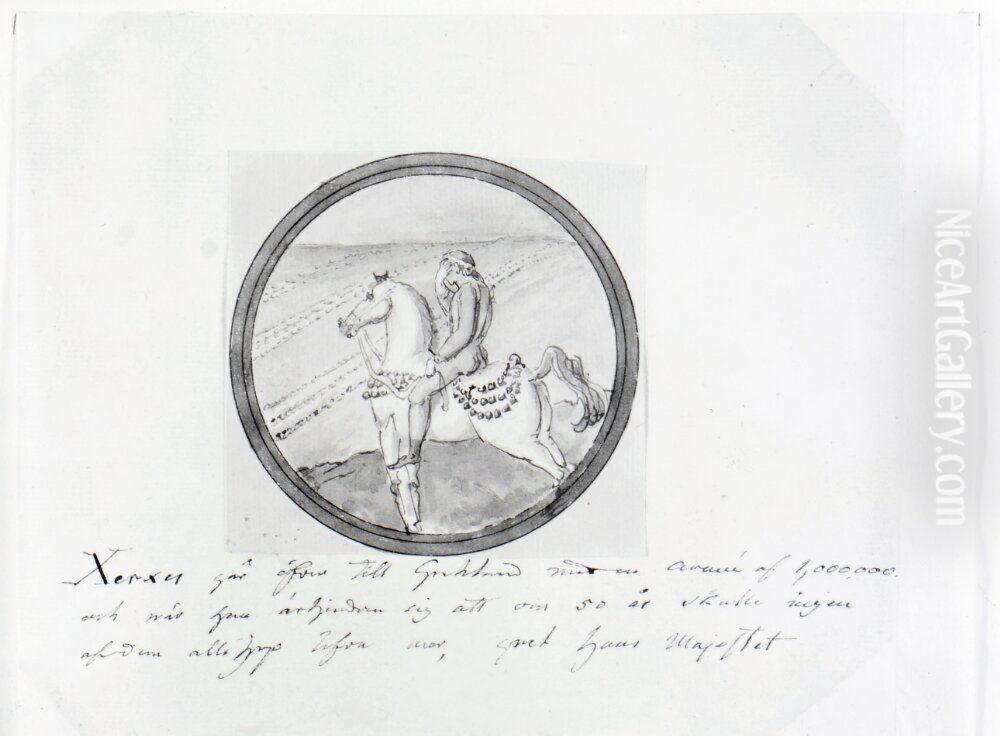 Xerxes går öfver till Grekland med en armée af 1,000,000.
och när han århindrar sig att om 50 år skulle ingen
af dem alla lefva mer, gret hans Majestet
NiceArtGallery.com